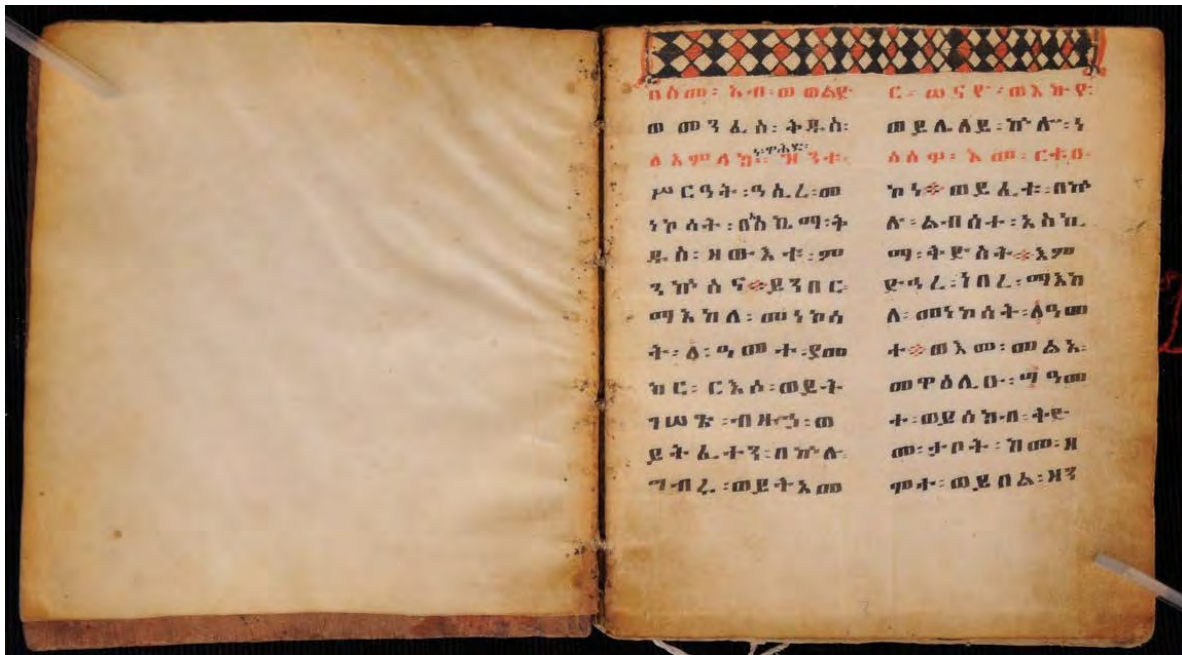 በስመ፡ አብ፡ ወ ወልድ፡
ወ መንፈስ፡ ቅዱስ፡
፩ አምላክ፡ ዝንቱ፡
ነ፡ዋሕዱ፡
ሥርዓት፡ ዓቢረ፡ መ
ነኮሳት፡ በአኪማ፡ ቅ
ዱስ፡ ዘውእቱ፡ ም
ንኵስና። ይንበር፡
ማእከለ፡ መነኮሳ
ት፡ ፩፡ ዓመተ፡ ያመ
ክር፡ ርእሶ፡ ወይት
ገሠጽ፡ ብዙኀ፡ ወ
ይትፈተን፡ በኵሉ
ግብረ፡ ወይትአመ
ር፡ ሠናየ፡ ወእኩየ፡
ወይሌለይ፡ ኵሎ፡ ነ
ሰስዎ፡ እመ፡ ርቱዕ፡
ኮነ። ወይፈቱ፡ በኵ
ሉ፡ ልብሰተ፡ አስኬ
ማ፡ ቅድስት። እም
ድኅረ፡ ነበረ፡ ማእከ
ለ፡ መነኮሳት፡ ፩ዓመ
ተ። ወእመ፡ መልአ፡
መዋዕሊሁ፡ ፫ ዓመ
ተ፡ ወይሰክብ፡ ቅድ
መ፡ ታቦት፡ ከመ፡ ዘ
ሞተ፡ ወይበል፡ ዝን